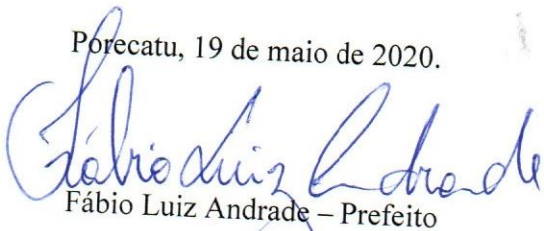 Porecatu, 19 de maio de 2020.
Fábio Luiz Andrade
Fábio Luiz Andrade – Prefeito